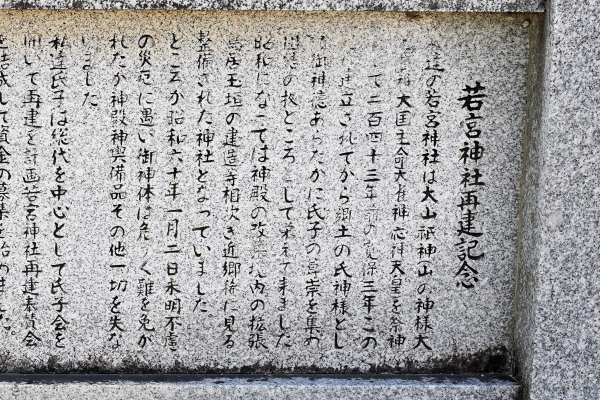 若宮神社再建記念
達の若宮神社は大山祇神山の神様大
大国主命大雀神応神天皇を祭神
て二百四十三年前の寛保三年この
建立されてから郷土の氏神様とし
御神徳あらたかに氏子の尊崇を集め
の拠どころとして栄えて来ました
昭和になっては神殿の改築境内の拡張
鳥居玉垣の建造等相次ぎ近郷稀に見る
整備された神社となっていました。
ところが昭和六十年一月二日未明不慮
の災厄に遇い御神体は危く難を免が
れたが神殿神輿備品その他一切を失な
いました
私達氏子は総代を中心として氏子会を
開いて再建を計画若宮神社再建奉賛会
を結成して資金の募集を始めました。